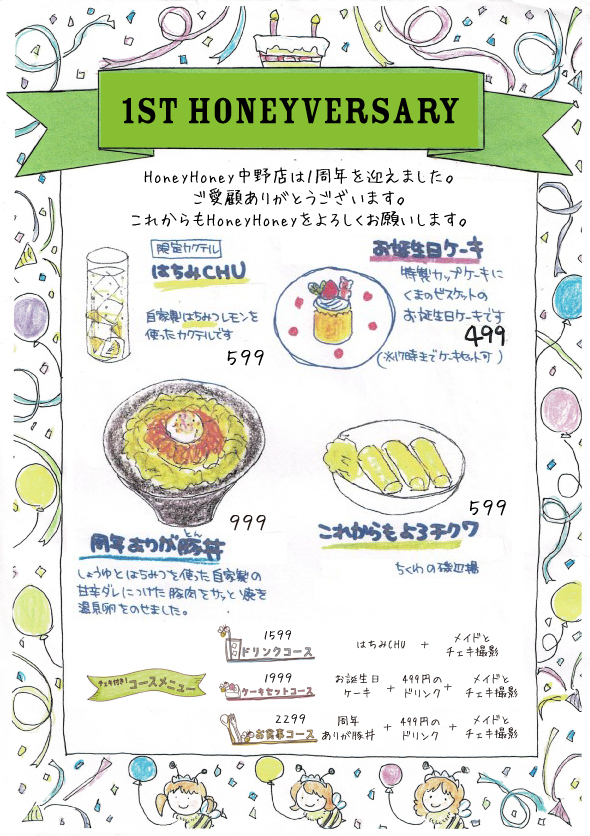 1ST HONEYVERSARY
HoneyHoney中野店は1周年を迎えました。
ご愛顧ありがとうございます。
これからもHoneyHoneyをよろしくお願いします。
限定カクテル
はちみCHU
自家製はちみつレモンを
使ったカクテルです
599
お誕生日ケーキ
特製カップケーキに
くまのビスケットの
お誕生日ケーキです
499
(※17時までケーキセット可)
999
周年ありが豚丼
とん
しょうゆとはちみつを使った自家製の
甘辛ダレにつけた豚肉をサッと焼き
温泉卵をのせました。
599
これからもよろチクワ
ちくわの磯辺揚
チェキ付き!コースメニュー
1599
ドリンクコース
はちみCHU + メイドと
チェキ撮影
1999
ケーキセットコース
お誕生日
ケーキ + 499円の
ドリンク + メイドと
チェキ撮影
2299
お食事コース
周年
ありが豚丼 + 499円の
ドリンク + メイドと
チェキ撮影